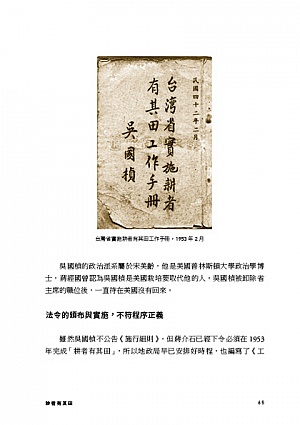 民國四十二年二月
台灣省實施耕者
有其田工作手冊
吳國楨
台灣省實施耕者有其田工作手冊,1953 年 2 月
吳國楨的政治派系屬於宋美齡,他是美國普林斯頓大學政治學博
士,蔣經國曾認為吳國楨是美國栽培要取代他的人,吳國楨被卸除省
主席的職位後,一直待在美國沒有回來。
法令的頒布與實施,不符程序正義
雖然吳國楨不公告《施行細則》,但蔣介石已經下令必須在 1953
年完成「耕者有其田」,所以地政局早已安排好時程,也編寫了《工
耕者有其田